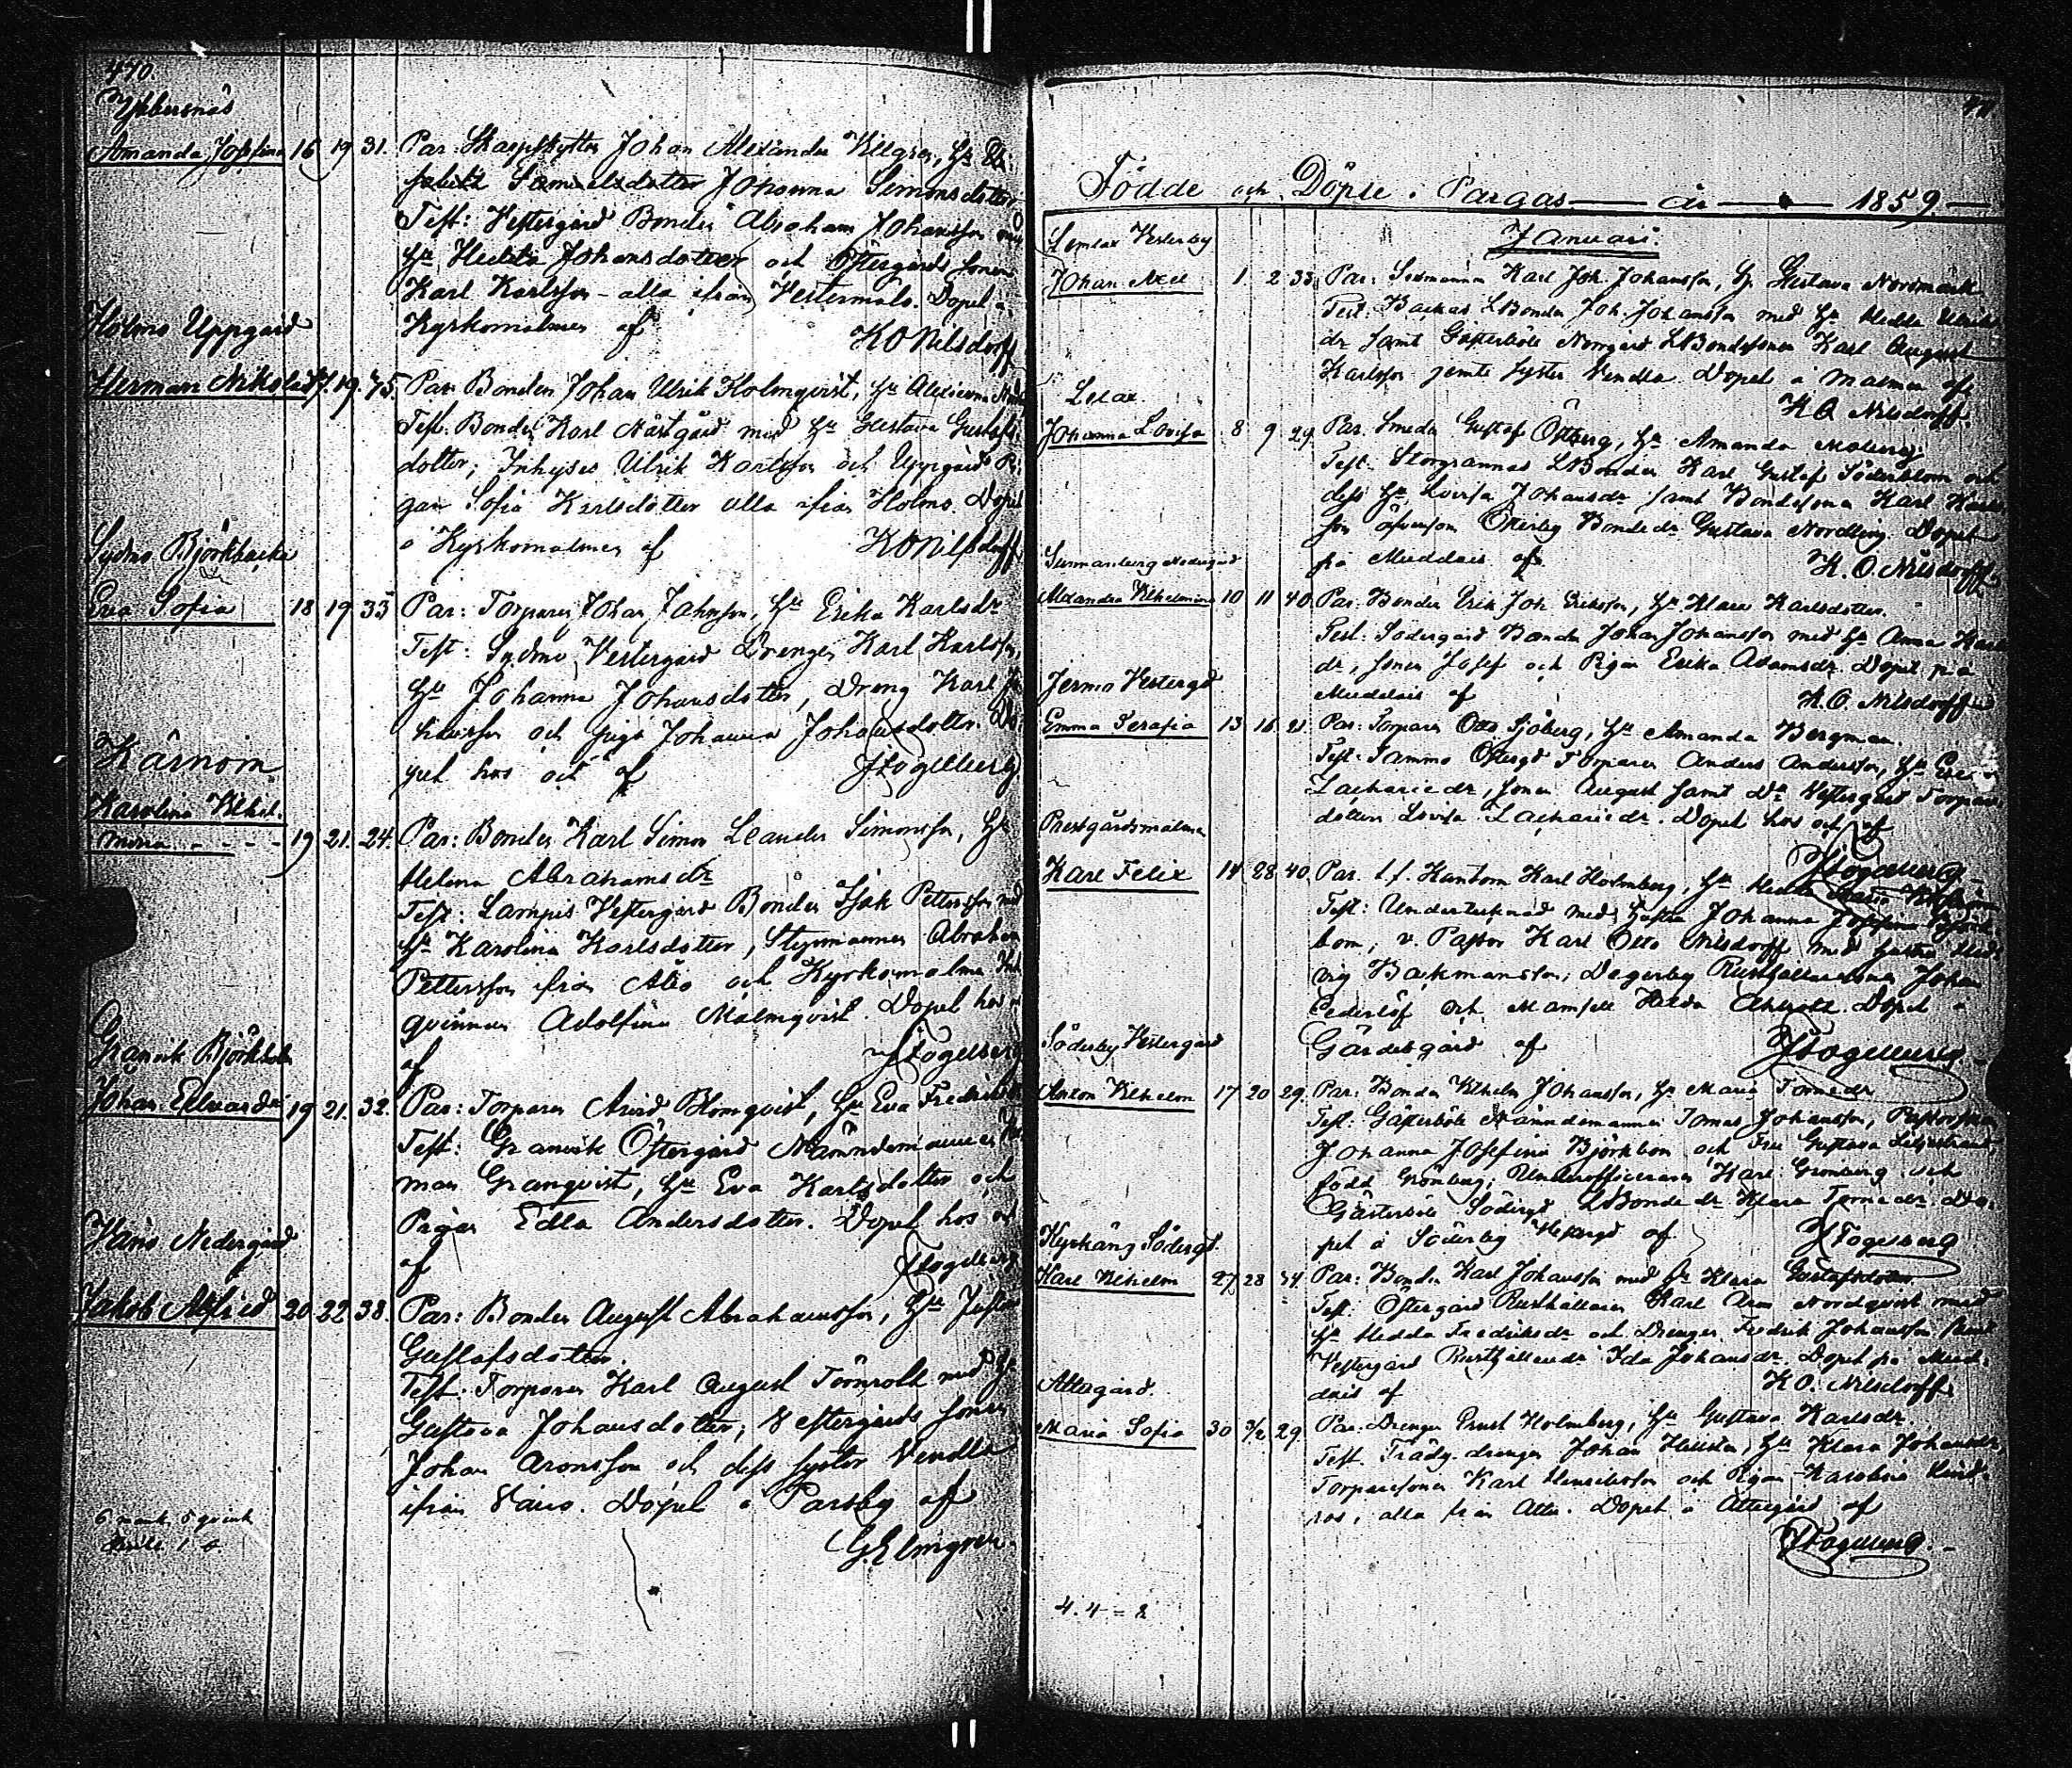 470.
Ybbersnäs
Amanda Josefina 16 19 31. Par: Skarpskytten Johan Alexander Killgren, Hu
Samuelsdotter Johanna Simonsdotter
Test: Vestergård Bonden Abraham Johansson med
Hu Hedda Johansdotter och Östergårds sonen
Karl Karlsson - alla ifrån Vestermalo. Döpet å
Kyrkomalmen af
KONilsdorff
Holmo Uppgård
Herman Nikolai 17. 19. 75. Par: Bonden Johan Ulrik Holmqvist, Hu
Test. Bonden Karl Norrgård med Hu Gustava Gustafs
dotter; Inhyses Ulrik Karlsson och Uppgård Pi
gan Sofia Karlsdotter alla ifrån Holmo. Döpet
å Kyrkomalmen af KONilsdorff
Sydmo Björkbacka
Eva Sofia 18 19 33 Par: Torparen Johan Johansson, Hu Erika Karlsdr
Test: Sydmo Vestergård Drengen Karl Karlsson,
Hu Johanna Johansdotter, Dreng Karl Jo
hansson och piga Johanna Johansdotter. Dö
pet hos och af JFogelberg
Kärnom
Karolina Vilhel-
mina - - - - 19 21. 24. Par: Bonden Karl Simon Leander Simonsson, Hu
Helena Abrahamsdr
Test: Lampis Vestergård Bonden Isak Pettersson med
Hu Karolina Karlsdotter, Styrmannen Abraham
Pettersson ifrån Ålö och Kyrkomalms
qvinnan Adolfina Malmqvist. Döpet hos o
af JFogelberg
Granvik Björkholm
Johan Edvard 19 21. 32. Par: Torparen Arvid Blomqvist, Hu Eva Fredriksdr
Test: Granvik Östergård Nämndemannen
man Granqvist, Hu Eva Karlsdotter och
Pigan Edla Andersdotter. Döpet hos och
af JFogelberg
Vänö Nedergård
Jakob Alfred 20 22 38. Par: Bonden August Abrahamsson, Hu Justina
Gustafsdotter.
Test. Torparen Karl August Törnroth med Hu
Gustava Johansdotter; Vestergårds sonen
Johan Aronsson och dess syster Vendla
ifrån Vänö. Döpet å Parsby af
G.Elmgren.
6 mank. 5 qvink
1 o.
Födde och Döpte i Pargas — år — 1859. —
Januari.
Lemlax Vesterby
Johan Axel 1. 2 33. Par: Sexmannen Karl Joh. Johansson, Hu Gustava Nordmark
Test: Backas LBonden Joh. Johansson med Hu Hedda Ulriks
dr samt Gästerböle Norrgård LBondesonen Karl August
Karlsson jemte syster Vendla Döpet å malmen af
K.O. Nilsdorff.
Lelax
Johanna Lovisa 8 9 29 Par. Smeden Gustaf Östberg, Hu Amanda Malberg.
Test: Storgrannas LBonden Karl Gustaf Söderblom och
dess Hu Lovisa Johansdr samt Bondesonen Karl Karls
son äfvensom Österby Bondedr Gustava Nordling. Döpet
på Muddais af K.O.Nilsdorff
Simonsberg Nedergård
Alexandra Vilhelmina 10 11 40. Par: Bonden Erik Joh Eriksson, Hu Klara Karlsdotter.
Test: Södergård Bonden Johan Johansson med Hu Anna Karls
dr, sonen Josef och Pigan Erika Adamsdr. Döpet på
Muddais af K.O. Nilsdorff
Jermo Vestergd
Emma Serafia 13 16 21. Par: Torparen Otto Sjöberg, Hu Amanda Bergman.
Test: Jammo Östergd Torparen Anders Andersson, Hu Eva
Zachariedr, sonen August samt Do Vestergård Torpare
dottern Lovisa Zachariedr. Döpet hos och af
JFogelberg
Prestgårdsmalmen
Karl Felix 14 28 40. Par. t.f. Kantorn Karl Holmberg, Hu Hedda Maria
Test: Undertecknad med Hustru Johanna Josefina Björk
bom, v. Pastor Karl Otto Nilsdorff med hustru Hed
vig Backmansson; Degerby Rusthållaresonen Johan
Cederlöf och Mamsell Hedda Döpet å
Gårdesgård af JFogelberg
Söderby Vestergård
Anton Vilhelm 17 20 29. Par: Bonden Vilhelm Johansson, Hu Maria Tomedr
Test: Gästerböle Nämndemannen Tomas Johansson, Pastorskan
Johanna Josefina Björkbom och Fru Gustava Liljestrand,
född Grönberg; Underofficeraren Karl Grönberg och
Gästerböle Södergd LBondedr Klara Tomedr. Dö-
pet å Söderby Vestergd af JFogelberg
Kyrkäng Södergd.
Karl Vilhelm 27 28 34. Par: Bonden Karl Johansson med Hu Klara Gustafsdotter
Test: Östergård Rusthållaren Karl Aron Nordqvist med
Hu Hedda Fredriksdr och Drengen Fredrik Johansson samt
Vestergård Rusthållaredr Ida Johansdr. Döpet på Mud-
dais af K.O. Nilsdorff
Attugård.
Maria Sofia 30 3/2. 29. Par: Drengen Ernst Holmberg, Hu Gustava Karlsdr.
Test. Trädg. drengen Johan Hellsten, Hu Klara Johansdr,
Torparesonen Karl Henriksson och Pigan Karolina Lind-
ros, alla från Attu. Döpet å Attugård af
JFogelberg. -
4. 4 = 8